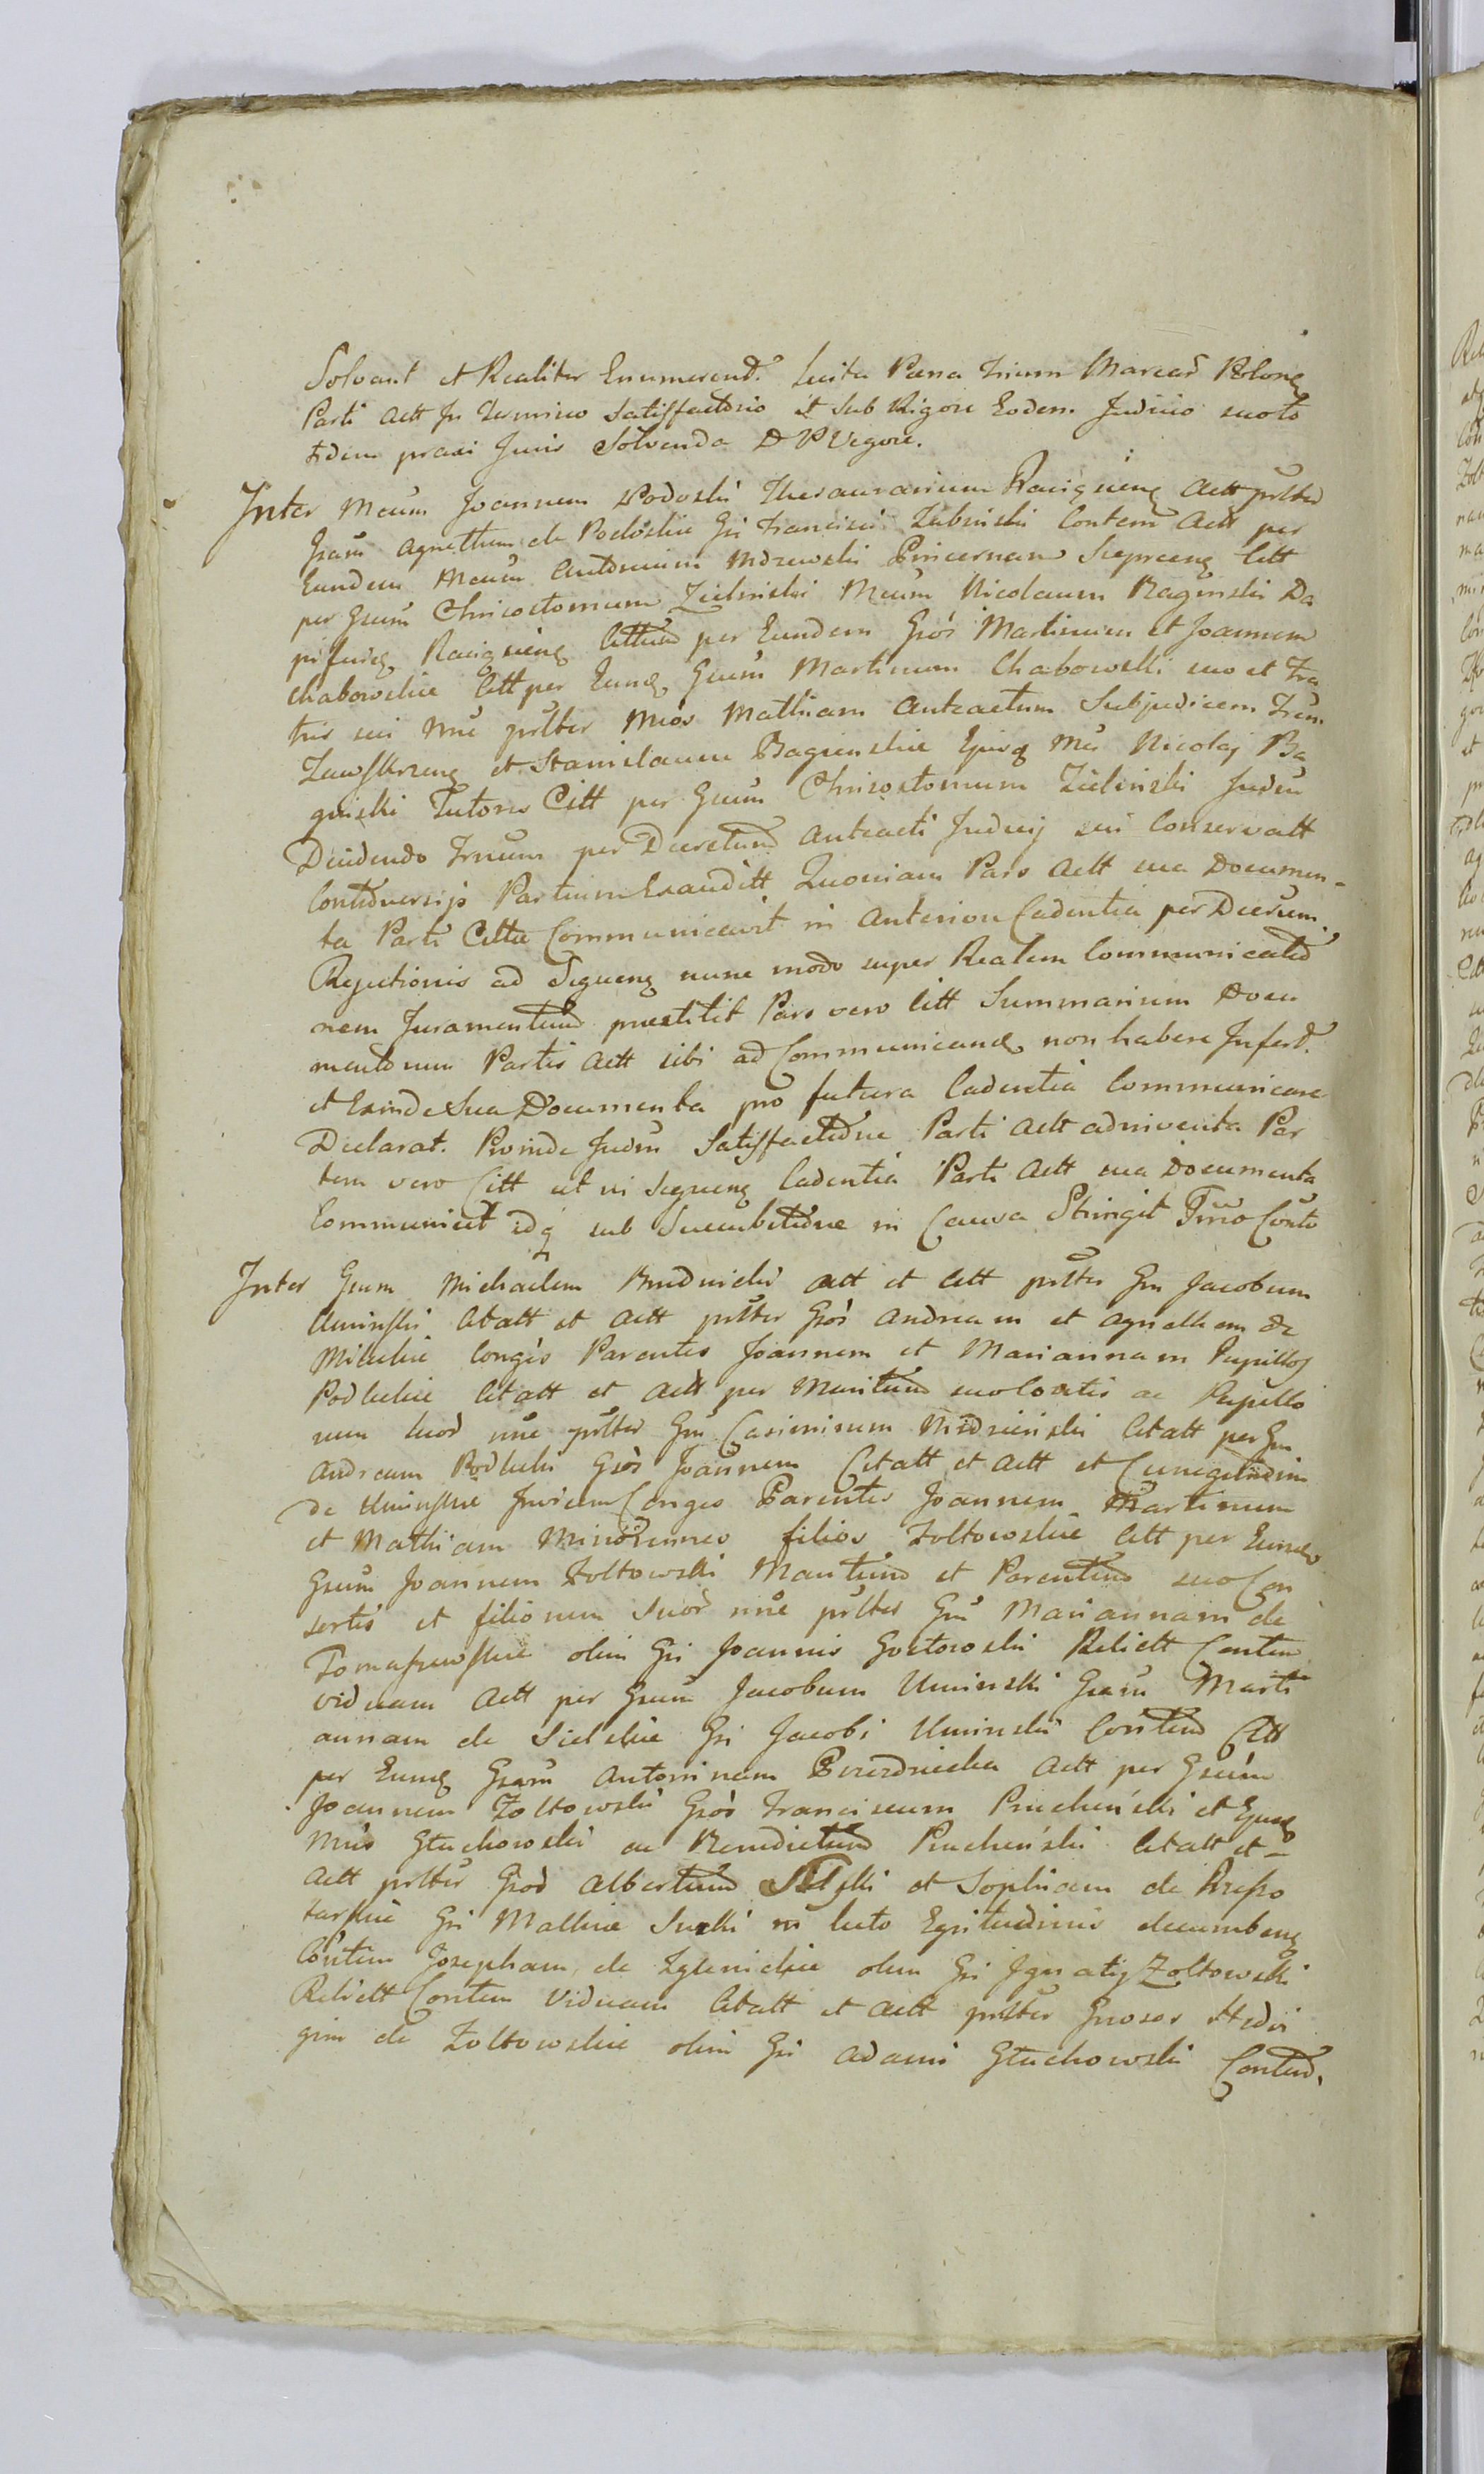 Solvant et Realiter Enumerend. luita Pæna trium Marcar Polonq
Parti Actt In Termino Satisfactorio et sub Rigore Eodem Judicio moto
tidem praxi Juris Solvenda D P Vigore.
Inter Mcum Joannem Podoski Thesaurarium Raciąsienq Actt prltter
Gsam Agnethem de Podoskie Gsi Francisci Zabinski Contem Actt per
Eundem Mcum Antonium Mdzewski Pincernam Sieprcenq Citt
per Gsum Chrisostomum Zielinski Mcum Nicolaum Baginski Da
piferiq Raciąsienq Cittum per Eundem Gsos Martinum et Joannem
Chabowskie Citt per Eunq Gsum Martinum Chabowski suo et Fra
tris sui nne prltter Mcos Mathiam Anteactum Subjudicem Trrum
Zawskrzenq et Stanislaum Bagienskie Ejusq Mci Nicolaj Ba
ginski Tutores Citt per Gsum Chrisostomum Zielinski Judiu
Decidendo Trnum per Decretum Anteacti Judicij sui Conservatt
Controversijs Partium Exauditt Quoniam Pars Actt sua Documen-
ta Parti Cittæ Communicavit in Anteriori Cadentia per Decrum
Rejectionis ad Sequenq nunc modo super Realem Communicatio
nem Juramentum præstitit Pars vero Citt Summarium Docu
mentorum Partis Actt sibi ad Communicand non habere Infert.
et Exinde Sua Documenta pro futura Cadentia Communicare
Declarat. Proinde Judm Satisfactione Parti Actt adinventa Par
tem vero Citt ut in sequenq Cadentia Parti Actt sua Documenta
Communicet idq sub Succubitione in Causa Stringit Trrno Conto
Inter Gsum Michaelem Brudnicki Actt et Citt prltter Gsm Jacobum
Uminski Citatt et Actt prltter Gsos Andream et Agnethem de
Miecskie Conges Parentes Joannem et Mariannam Pupillos
Podleckie Citatt et Actt per Maritum suo Consortis ac Pupillo
rum suor nne prltter Gsm Casimirum Mdzienski Citatt per Gsm
Andream Podlecki Gsos Joannem Citatt et Actt et Cunegundim
de Uminskie Invicem Conges Parentes Joannem Martinum
et Mathiam Minorennes filios Zoltowskie Citt per Eundem
Gsum Joannem Zoltowski Maritum et Parentem suo Con
sortis et filiorum Suor nne prltter Gsm Mariannam de
Tomaszewskie olim Gsi Joannis Gostowski Relictt Contem
viduam Actt per Gsum Jacobum Uminski Gsam Mari
annam de Sielskie Gsi Jacobi Uminski Contem Citt
per Eunq Gsam Antoninam Brudnicka Actt per Gsum
Joannem Zoltowski Gsos Franciscum Prucheński et Ejusq
Mcis Głuchowski ac Benedictum Prucheński Citatt et-
Actt prltter Gsos Albertum Sulski et Sophiam de Przeszo
tarskie Gsi Mathiæ Suski in lecto Egritudinis decumbenq
Contem Josepham de Zglenickie olim Gsi Ignatij Zoltowski
Relictt Contem Viduam Citatt et Actt prltter Gnosos Hedvi
gim de Zoltowskie olim Gsi Adami Głuchowski Contem.